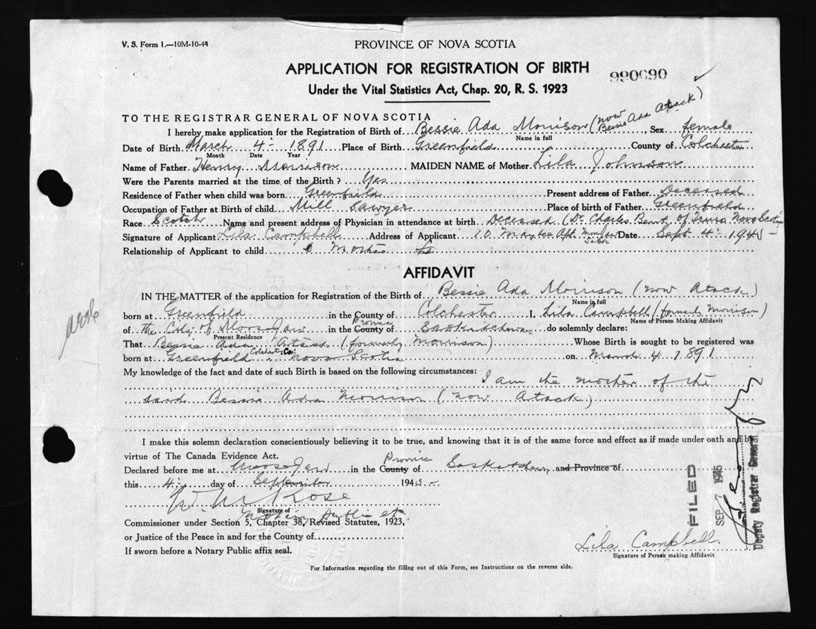 V. S. Form 1.—10M-10-44
PROVINCE OF NOVA SCOTIA
APPLICATION FOR REGISTRATION OF BIRTH
990090
Under the Vital Statistics Act, Chap. 20, R. S. 1923
TO THE REGISTRAR GENERAL OF NOVA SCOTIA
I hereby make application for the Registration of Birth of Bessie Ada Morrison (now Bessie Ada Atack) Sex female
Name in full
Date of Birth March 4 - 1891 Place of Birth Greenfield County of Colchester
Month Date Year
Name of Father Henry Morrison MAIDEN NAME of Mother Lila Johnson
Were the Parents married at the time of the Birth? Yes
Residence of Father when child was born Greenfield Present address of Father Deceased
Occupation of Father at Birth of child Mill Sawyer Place of birth of Father Greenfield
Race Scotch Name and present address of Physician in attendance at birth Deceased (Dr Charles Bent of Truro Nova Scotia
Signature of Applicant Lila Campbell Address of Applicant Moose Jaw Sask Date Sept 4 - 1945
Relationship of Applicant to child Mother
AFFIDAVIT
IN THE MATTER of the application for Registration of the Birth of Bessie Ada Morrison (now Atack)
Name in full
born at Greenfield in the County of Colchester I, Lila Campbell (formerly Morrison)
Name of Person Making Affidavit
of The City of Moose Jaw in the County of Province Saskatchewan do solemnly declare:
Present Residence
That Bessie Ada Atack (formerly Morrison) Whose Birth is sought to be registered was
born at Greenfield Colchester Co Nova Scotia on March 4 1891
My knowledge of the fact and date of such Birth is based on the following circumstances: I am the mother of the
said Bessie Ada Morrison (now Atack)
I make this solemn declaration conscientiously believing it to be true, and knowing that it is of the same force and effect as if made under oath and by
virtue of The Canada Evidence Act.
Declared before me at Moose Jaw in the County Province of Saskatchewan and Province of
this 4 day of September 1945
W. M. Rose
Signature of
Commissioner under Section 5, Chapter 38, Revised Statutes, 1923,
or Justice of the Peace in and for the County of
If sworn before a Notary Public affix seal.
Lila Campbell
Signature of Person making Affidavit
For Information regarding the filling out of this Form, see Instructions on the reverse side.
FILED
SEP 7 1945
Deputy Registrar General